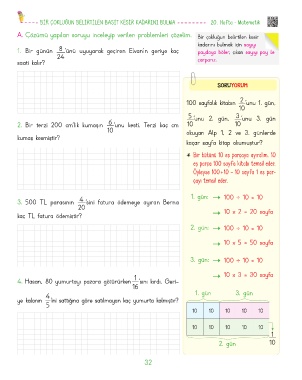 BİR ÇOKLUĞUN BELİRTİLEN BASİT KESİR KADARINI BULMA
20. Hafta - Matematik
A. Çözümü yapılan soruyu inceleyip verilen problemleri çözelim.
Bir çokluğun belirtilen kesir kadarını bulmak için sayıyı paydaya böler, çıkan sayıyı pay ile çarparız.
1. Bir günün 8/24 'ünü uyuyarak geçiren Elvan'ın geriye kaç
saati kalır?
2. Bir terzi 200 cm'lik kumaşın 6/10 'unu kesti. Terzi kaç cm
kumaş kesmiştir?
3. 500 TL parasının 4/20 'sini fatura ödemeye ayıran Berna
kaç TL fatura ödemiştir?
4. Hasan, 80 yumurtayı pazara götürürken 1/16 'sını kırdı. Geri-
ye kalanın 4/5 'ini sattığına göre satılmayan kaç yumurta kalmıştır?
SORUYORUM
100 sayfalık kitabın 2/10 'unu 1. gün,
5/10 'unu 2. gün, 3/10 'unu 3. gün
okuyan Alp 1. 2 ve 3. günlerde
kaçar sayfa kitap okumuştur?
Bir bütünü 10 eş parçaya ayıralım. 10
eş parça 100 sayfa kitabı temsil eder.
Öyleyse 100÷10 = 10 sayfa 1 eş par-
çayı temsil eder.
1. gün: → 100 ÷ 10 = 10
→ 10 x 2 = 20 sayfa
2. gün: → 100 ÷ 10 = 10
→ 10 x 5 = 50 sayfa
3. gün: → 100 ÷ 10 = 10
→ 10 x 3 = 30 sayfa
1. gün 3. gün
10 10 10 10 10
10 10 10 10 10
2. gün
1/10
32